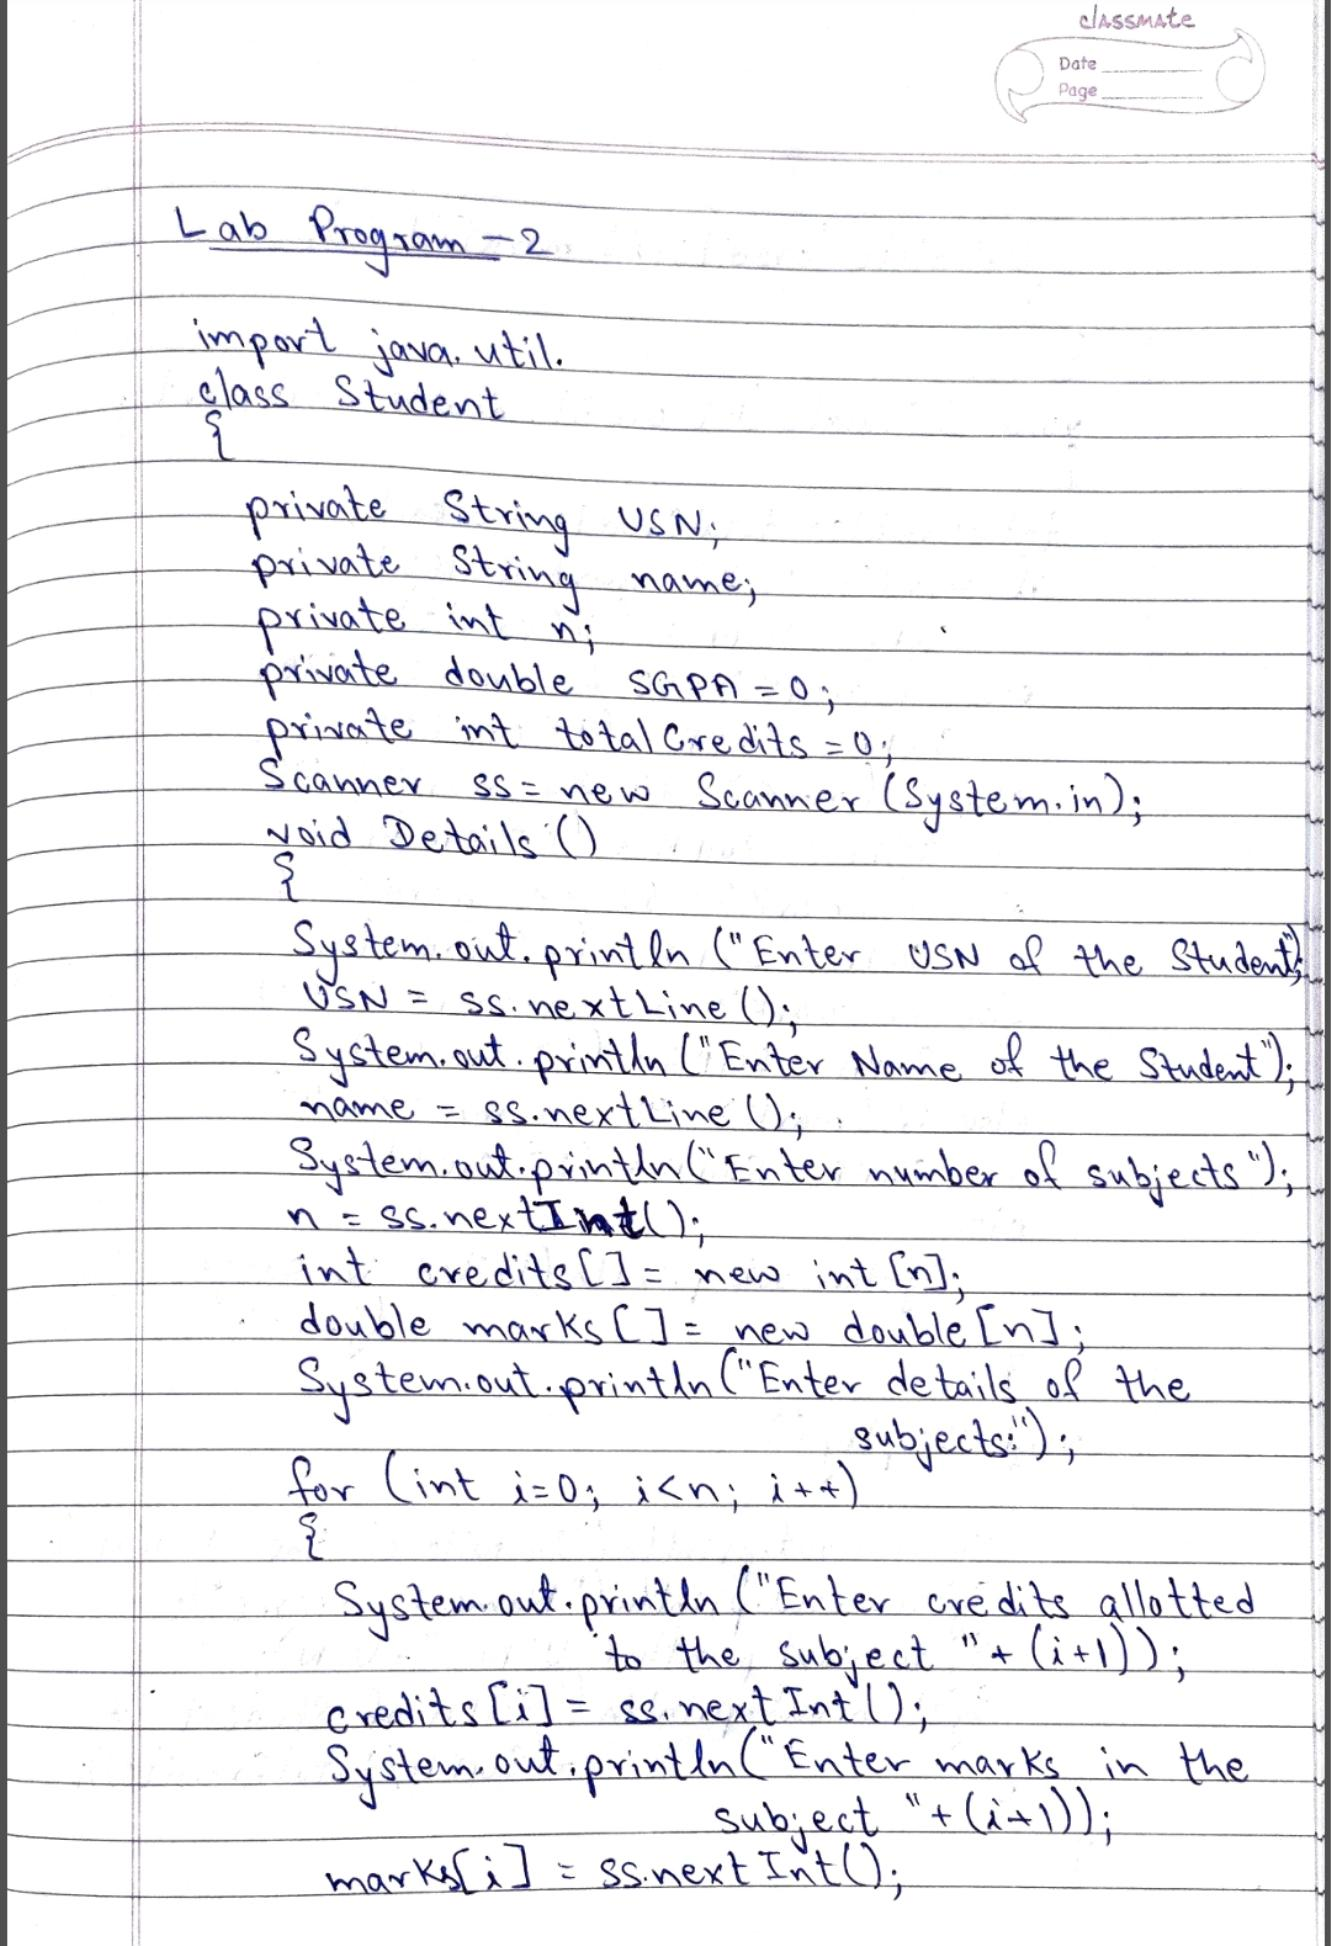 classmate
Date
Page
Lab Program - 2
import java.util.
class Student
{
private String USN;
private String name;
private int n;
private double SGPA = 0;
private int totalCredits = 0;
Scanner ss = new Scanner (System.in);
void Details ()
{
System.out.println ("Enter USN of the Student");
USN = ss.nextLine ();
System.out.println ("Enter Name of the Student");
name = ss.nextLine ();
System.out.println ("Enter number of subjects");
n = ss.nextInt();
int credits [] = new int [n];
double marks [] = new double [n];
System.out.println ("Enter details of the
subjects:");
for (int i=0; i<n; i++)
{
System.out.println ("Enter credits allotted
to the subject "+ (i+1));
credits [i] = ss.nextInt ();
System.out.println ("Enter marks in the
subject "+(i+1));
marks[i] = ss.nextInt();